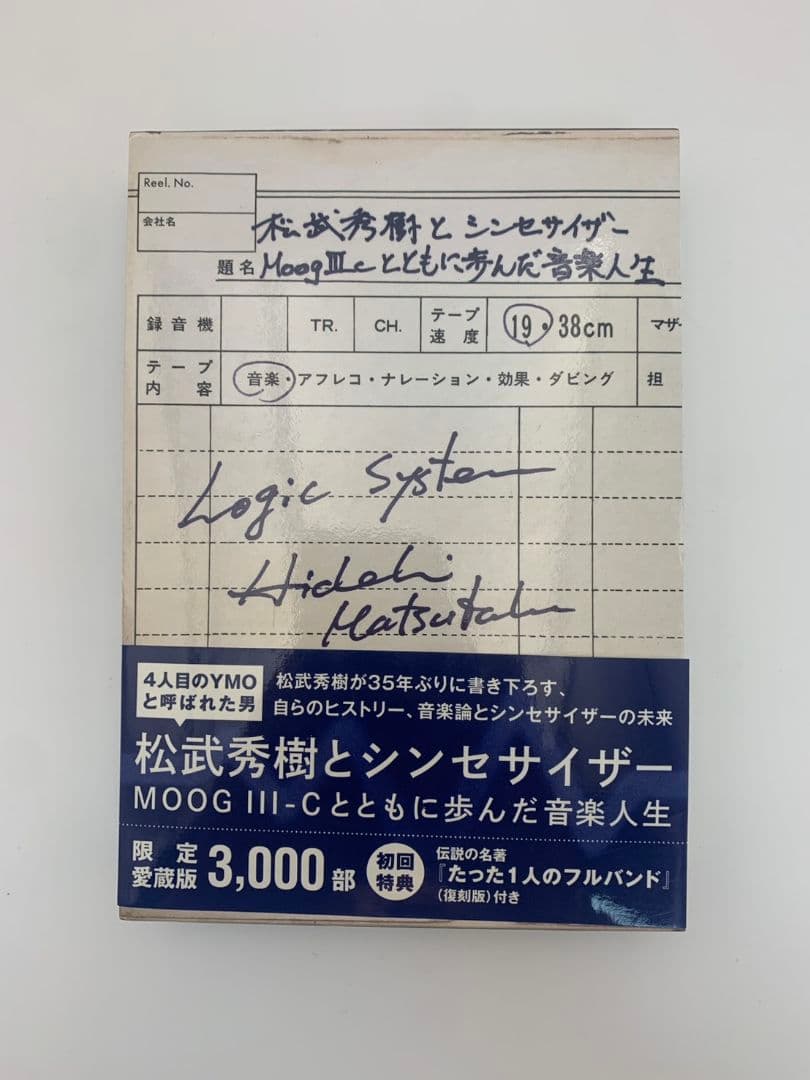 Reel. No.
会社名
松武秀樹とシンセサイザー
題名 MoogⅢcとともに歩んだ音楽人生
録音機 TR. CH. テープ速度 19・38cm マザー
テープ内容 音楽・アフレコ・ナレーション・効果・ダビング 担
Logic System
Hideki
Matsutake
4人目のYMO
と呼ばれた男
松武秀樹が35年ぶりに書き下ろす、
自らのヒストリー、音楽論とシンセサイザーの未来
松武秀樹とシンセサイザー
MOOG III-Cとともに歩んだ音楽人生
限定
愛蔵版 3,000部
初回
特典
伝説の名著
『たった1人のフルバンド』
(復刻版)付き